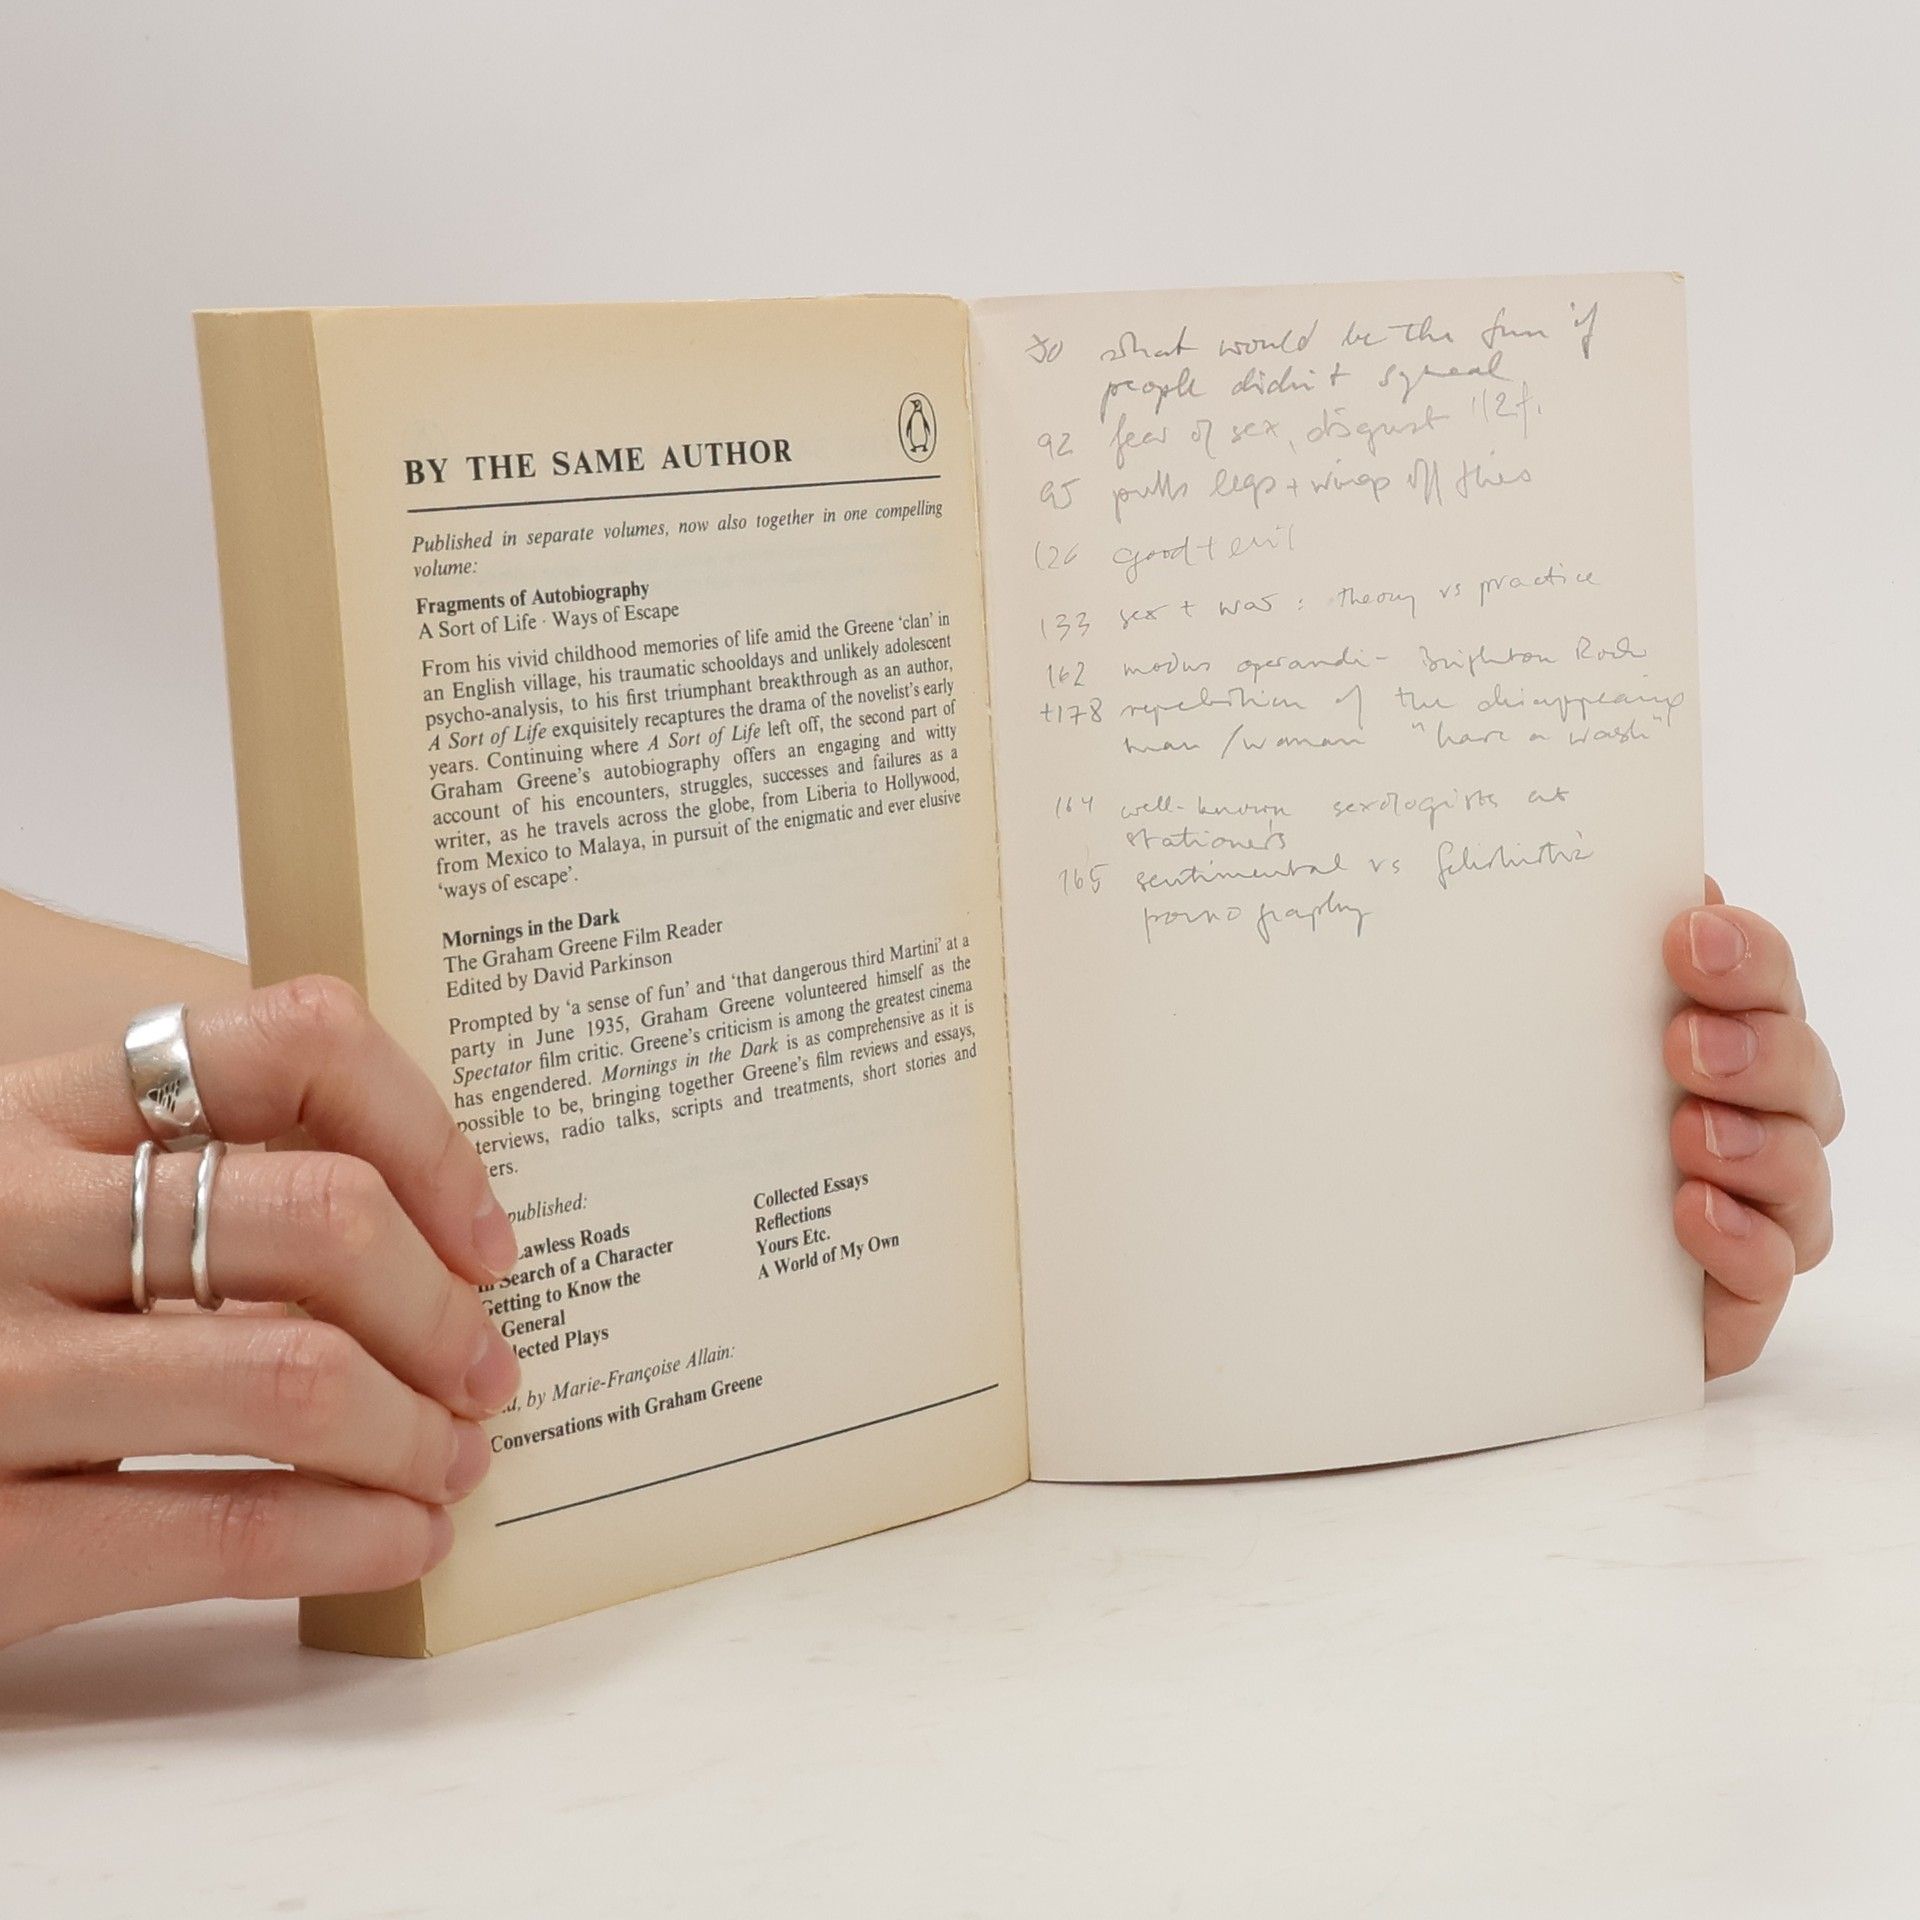 BY THE SAME AUTHOR
Published in separate volumes, now also together in one compelling
volume:
Fragments of Autobiography
A Sort of Life · Ways of Escape
From his vivid childhood memories of life amid the Greene ‘clan’ in
an English village, his traumatic schooldays and unlikely adolescent
psycho-analysis, to his first triumphant breakthrough as an author,
A Sort of Life exquisitely recaptures the drama of the novelist’s early
years. Continuing where A Sort of Life left off, the second part of
Graham Greene’s autobiography offers an engaging and witty
account of his encounters, struggles, successes and failures as a
writer, as he travels across the globe, from Liberia to Hollywood,
from Mexico to Malaya, in pursuit of the enigmatic and ever elusive
‘ways of escape’.
Mornings in the Dark
The Graham Greene Film Reader
Edited by David Parkinson
Prompted by ‘a sense of fun’ and ‘that dangerous third Martini’ at a
party in June 1935, Graham Greene volunteered himself as the
Spectator film critic. Greene’s criticism is among the greatest cinema
has engendered. Mornings in the Dark is as comprehensive as it is
possible to be, bringing together Greene’s film reviews and essays,
terviews, radio talks, scripts and treatments, short stories and
ers.
published:
Lawless Roads
Search of a Character
Getting to Know the
General
lected Plays
Collected Essays
Reflections
Yours Etc.
A World of My Own
by Marie-Françoise Allain:
Conversations with Graham Greene
what would be the fun if
people didn't squeal
92 fear of sex, disgust 112f.
95 pulls legs + wings off flies
126 good + evil
133 sex + war : theory vs practice
162 modus operandi - Brighton Rock
+178 repetition of the disappearing
man / woman "have a wash"
164 well-known sexologists at
stationers
165 sentimental vs fetishistic
pornography